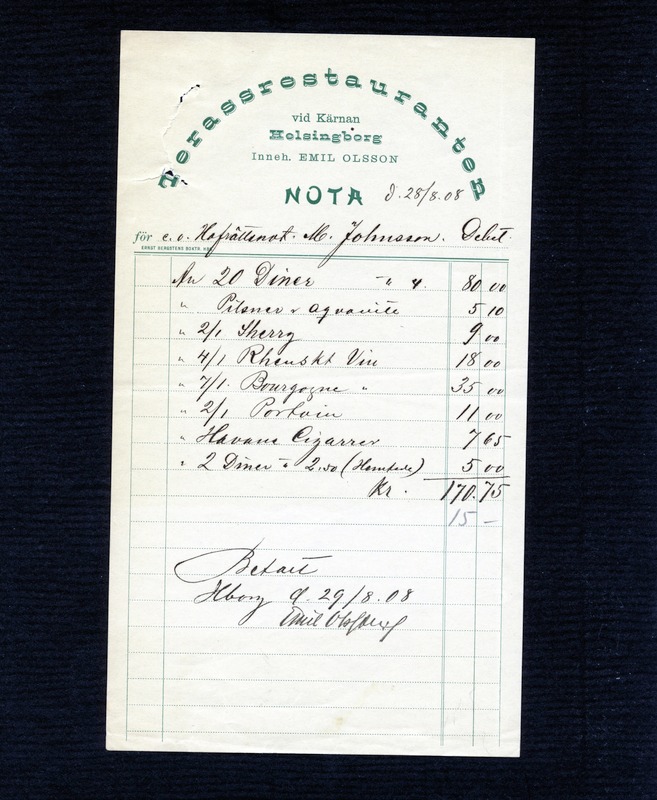 Terassrestauranten
vid Kärnan
Helsingborg
Inneh. EMIL OLSSON
NOTA d. 28/8.08
för c. o. Hofrättsnot. M. Johnsson. Debet.
ERNST BERGSTENS BOKTR. HBG
An 20 Diner " 4. 80 00
" Pilsner & aqvavite 5 10
" 2/1 Sherry 9 00
" 4/1 Rhenskt Vin 18 00
" 7/1. Bourgogne " 35 00
" 2/1 Portvin 11 00
" Havana Cigarrer 7 65
" 2 Diner à 2.50 ( ) 5 00
Kr. 170.75
15 –
Betalt
Hborg d. 29/8.08
Emil Olsson